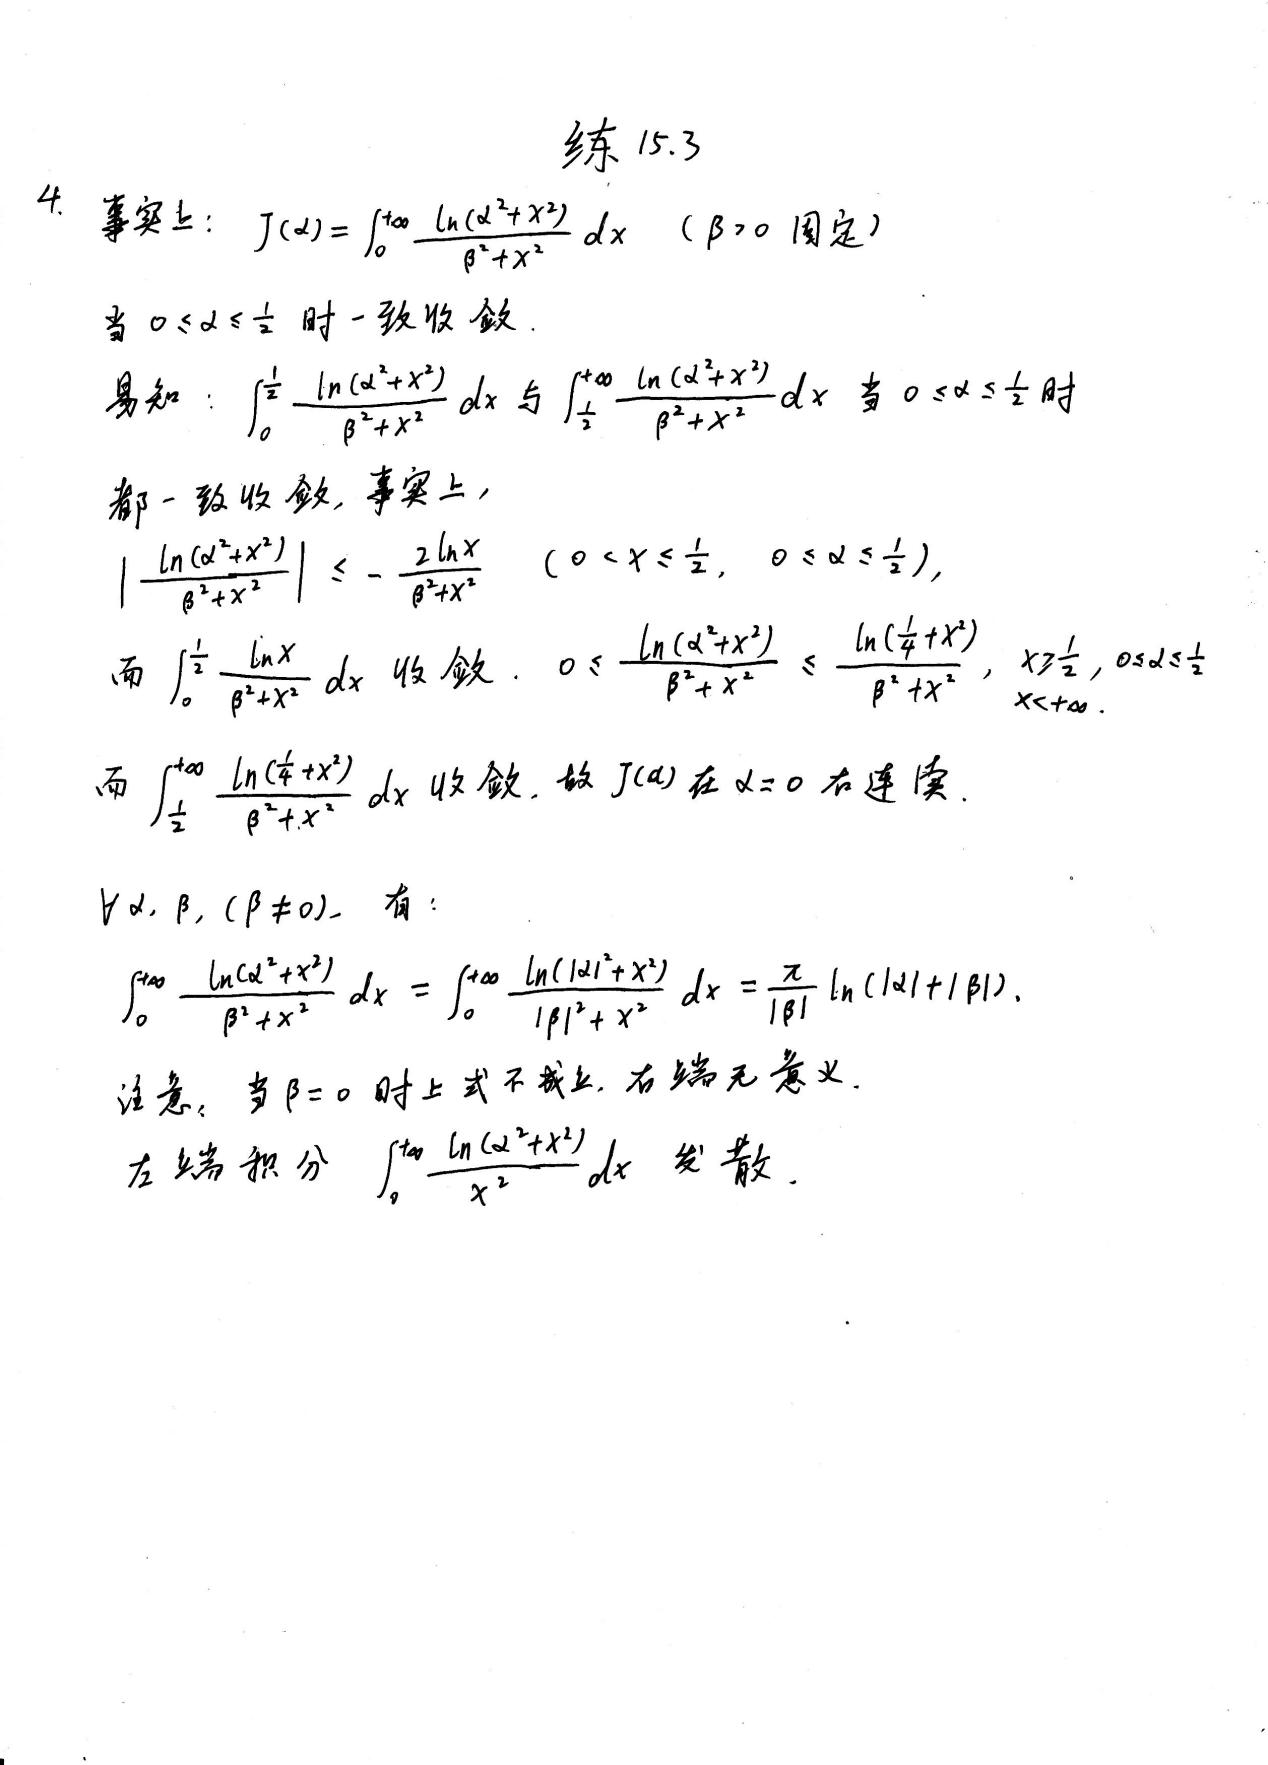 练 15.3
4. 事实上: J(α) = ∫₀^{+∞} \frac{ln(α²+x²)}{β²+x²} dx (β>0 固定)
当 0≤α≤\frac{1}{2} 时一致收敛.
易知: ∫₀^{\frac{1}{2}} \frac{ln(α²+x²)}{β²+x²} dx 与 ∫_{\frac{1}{2}}^{+∞} \frac{ln(α²+x²)}{β²+x²} dx 当 0≤α≤\frac{1}{2} 时
都一致收敛, 事实上,
|\frac{ln(α²+x²)}{β²+x²}| ≤ -\frac{2lnx}{β²+x²} (0<x≤\frac{1}{2}, 0≤α≤\frac{1}{2}),
而 ∫₀^{\frac{1}{2}} \frac{lnx}{β²+x²} dx 收敛. 0≤ \frac{ln(α²+x²)}{β²+x²} ≤ \frac{ln(\frac{1}{4}+x²)}{β²+x²}, x≥\frac{1}{2}, 0≤α≤\frac{1}{2}
x<+∞.
而 ∫_{\frac{1}{2}}^{+∞} \frac{ln(\frac{1}{4}+x²)}{β²+x²} dx 收敛. 故 J(α) 在 α=0 右连续.
∀ α, β, (β≠0), 有:
∫₀^{+∞} \frac{ln(α²+x²)}{β²+x²} dx = ∫₀^{+∞} \frac{ln(|α|²+x²)}{|β|²+x²} dx = \frac{π}{|β|} ln(|α|+|β|).
注意: 当 β=0 时上式不成立. 右端无意义.
左端积分 ∫₀^{+∞} \frac{ln(α²+x²)}{x²} dx 发散.